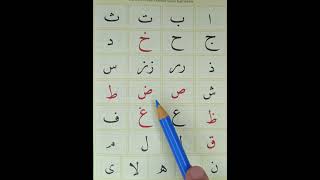 ا ب ت ث
ج ح خ د
ذ ر ز س
ش ص ض ط
ظ ع غ ف
ق ل م
ن ه لا ى